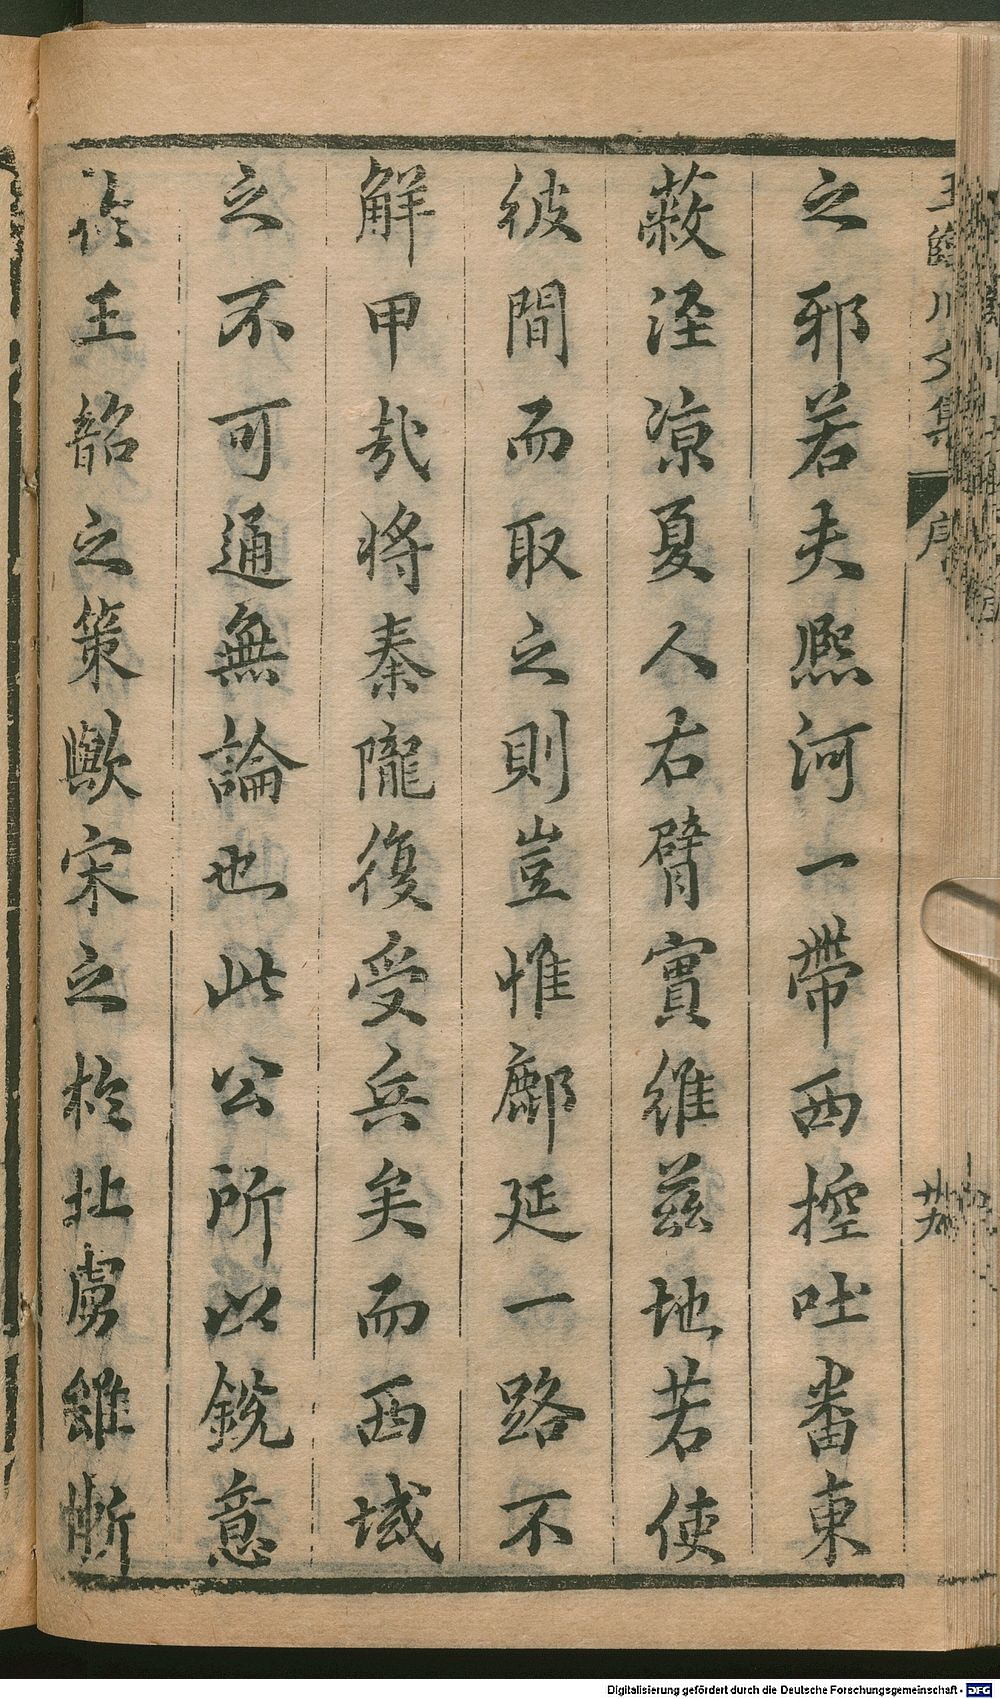 王臨川文集
序
之邪若夫熈河一帶西控吐番東
蔽涇凉夏人右臂實維茲地若使
彼間而取之則豈惟鄜延一路不
解甲哉將秦隴復受兵矣而西域
之不可通無論也此公所以銳意
於王韶之策歟宋之於北虜雖慚
Digitalisierung gefördert durch die Deutsche Forschungsgemeinschaft - DFG